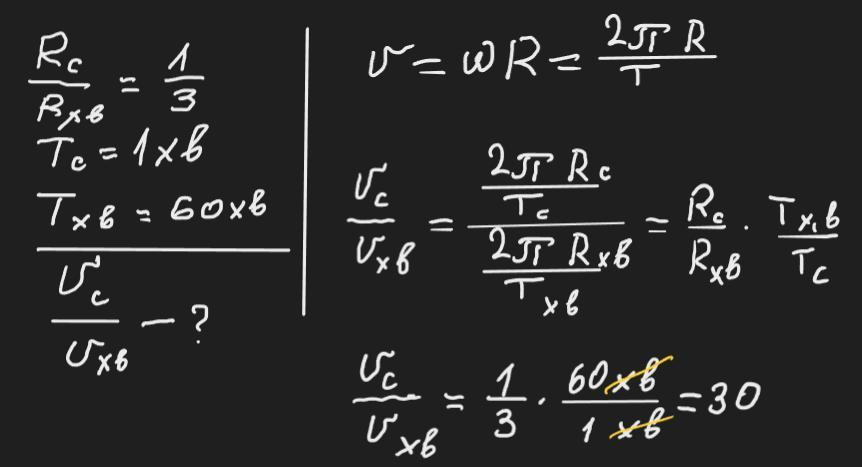 R_c / R_хв = 1/3
T_c = 1хв
T_хв = 60хв
υ_c / υ_хв — ?
υ = ωR = 2πR / T
υ_c / υ_хв = (2πR_c / T_c) / (2πR_хв / T_хв) = R_c / R_хв · T_х,в / T_c
υ_c / υ_хв = 1/3 · 60хв / 1хв = 30